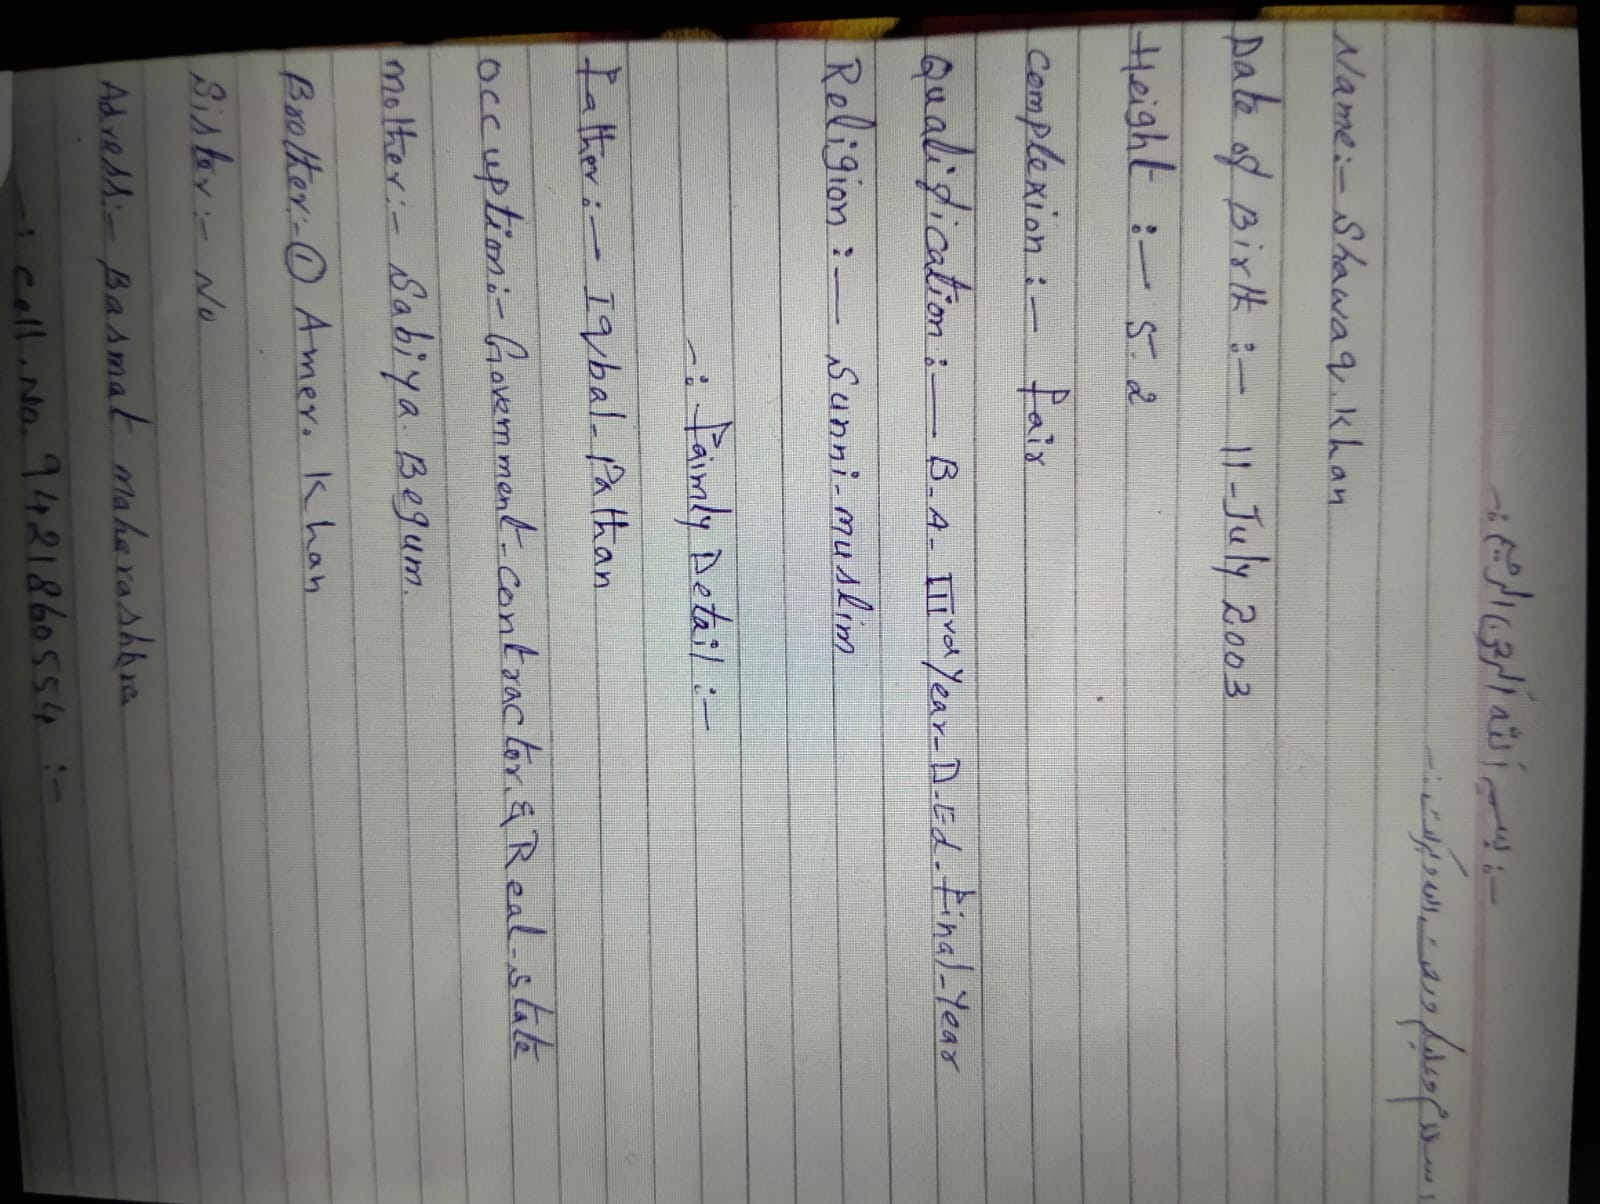 -: بسم الله الرحمن الرحيم :-
Name:- Shawaq. Khan
Date of Birth :- 11-July 2003
Height :- 5.2
Complexion :- Fair
Qualification :- B-A-IIIrd Year-D-Ed-Final-Year
Religion :- Sunni-muslim
-: Faimly Detail :-
Father :- Iqbal-Pathan
Occuption:- Government-contractor. & Real-state
Mother:- Sabiya. Begum.
Brother:- ① Amer. Khan
Sister:- No
Adress:- Basmat maharashhra
-: Cell. No. 9421860554 :-